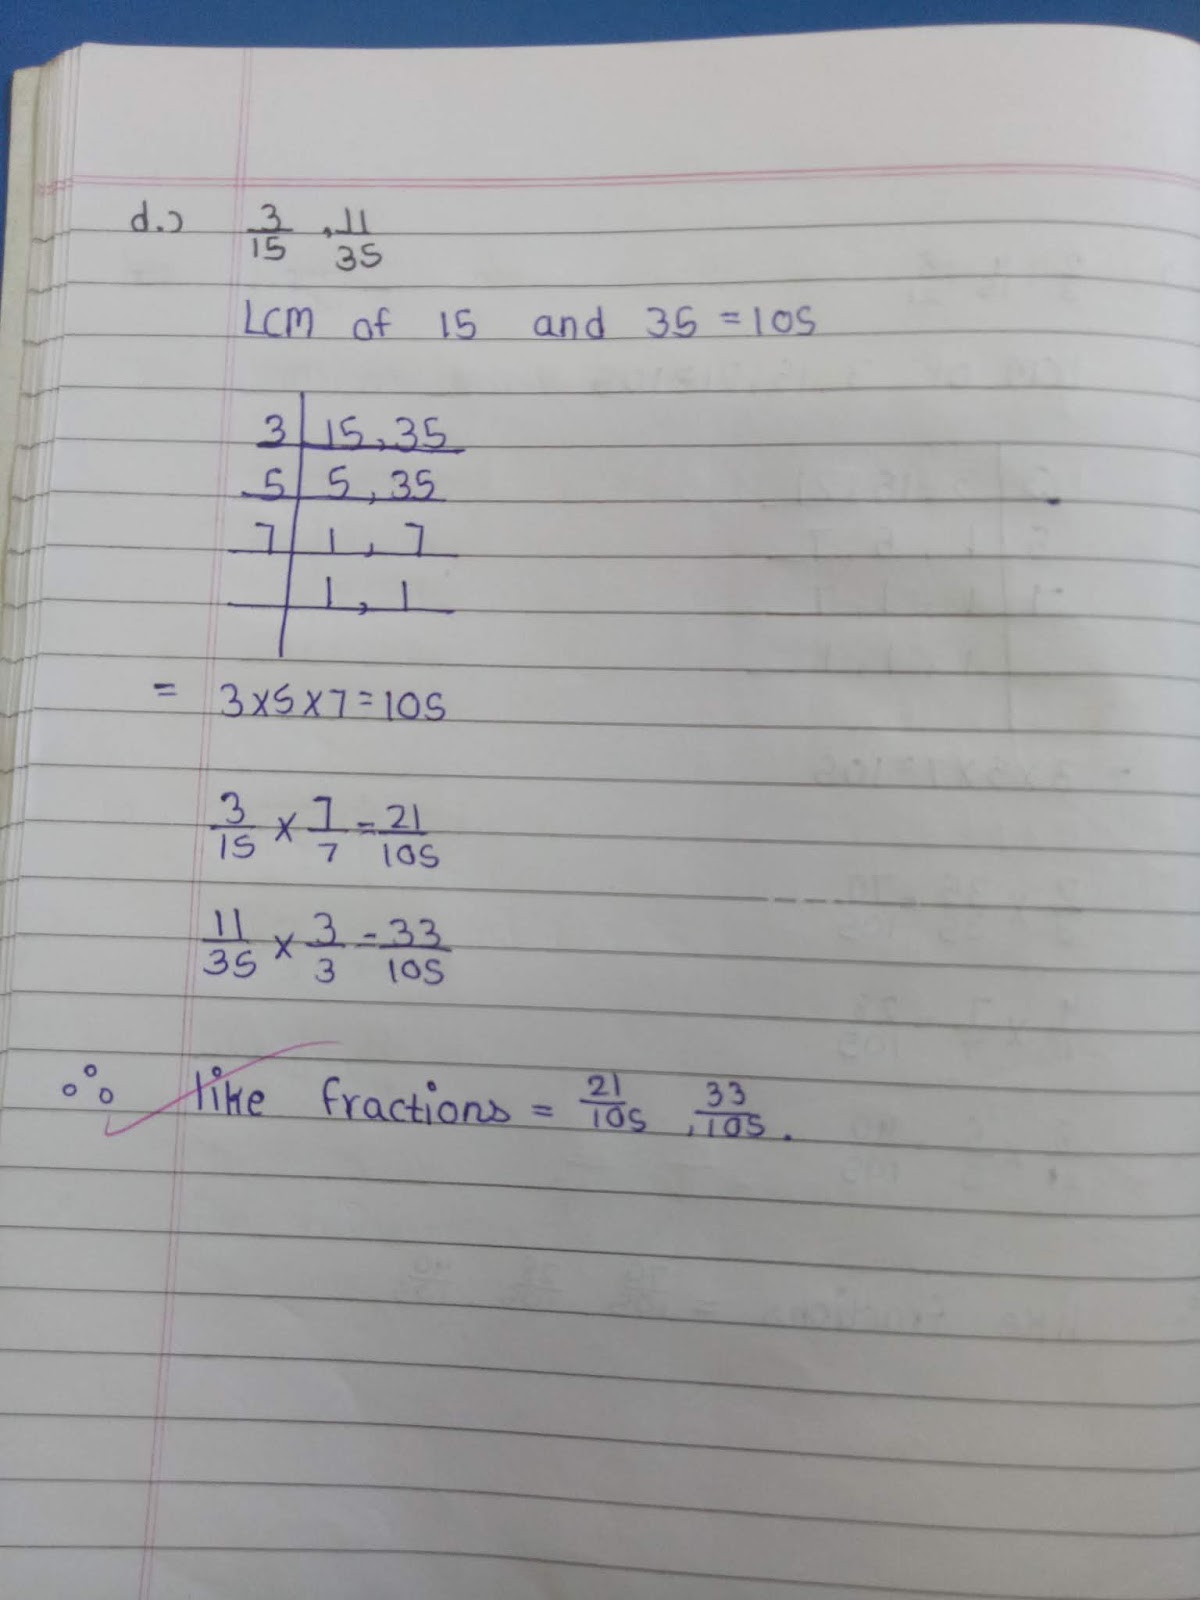 d.) 3/15 , 11/35
LCM of 15 and 35 = 105
3 | 15, 35
5 | 5, 35
7 | 1, 7
1, 1
= 3×5×7=105
3/15 × 7/7 = 21/105
11/35 × 3/3 = 33/105
∴ like fractions = 21/105, 33/105.